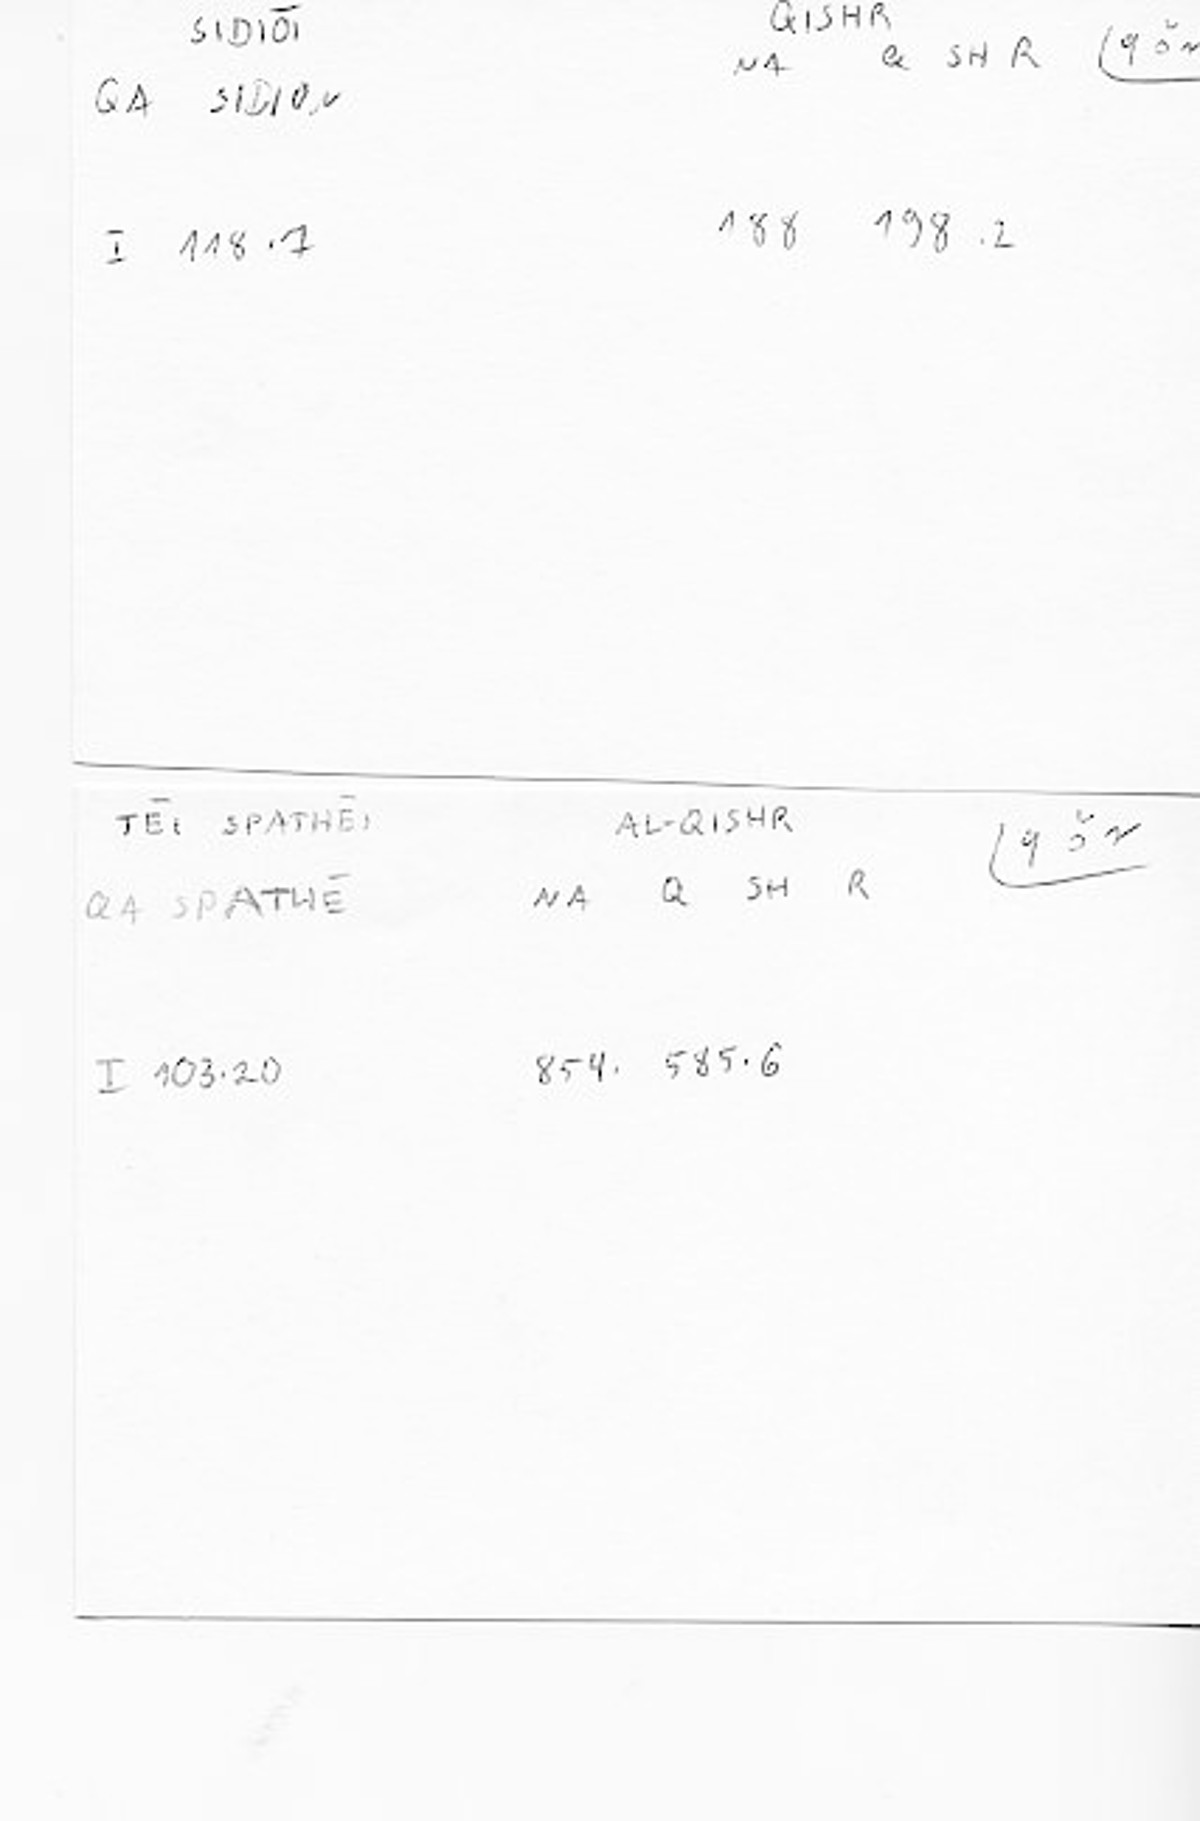 SIDIŌI QISHR
QA SIDIOν NA Q SH R (qšr
I 118.7 188 198.2
TĒi SPATHĒi AL-QISHR
QA SPATHĒ NA Q SH R
I 103.20 854. 585.6